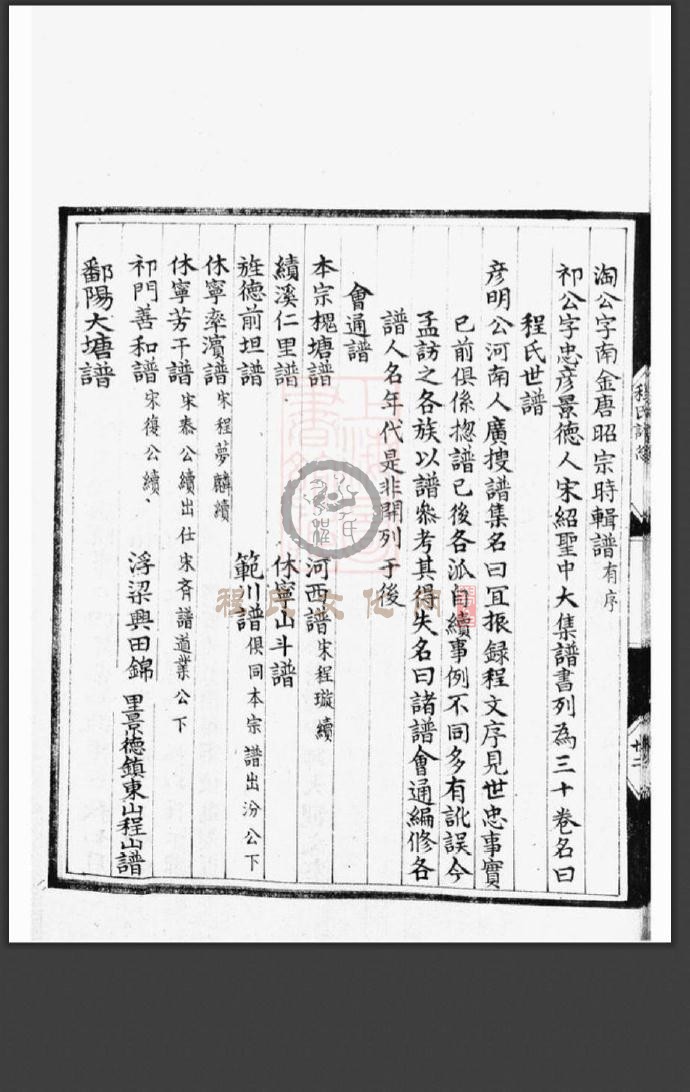 淘公字南金唐昭宗時輯譜有序
祁公字忠彥景德人宋紹聖中大集譜書列為三十卷名曰
程氏世譜
彥明公河南人廣搜譜集名曰冝振録程文序見世忠事實
已前俱係揔譜已後各派自續事例不同多有訛誤今
孟訪之各族以譜叅考其得失名曰諸譜會通編修各
譜人名年代是非開列于後
會通譜
本宗槐塘譜 河西譜宋程璇續
績溪仁里譜 休寧山斗譜
旌德前坦譜 範川譜俱同本宗譜出汾公下
休寧率濱譜宋程夢麟續
休寧芳干譜宋泰公續出仕宋齊譜道業公下
祁門善和譜宋復公續 浮梁興田錦里景德鎮東山程山譜
鄱陽大塘譜
程氏譜
廿二
程氏文化网